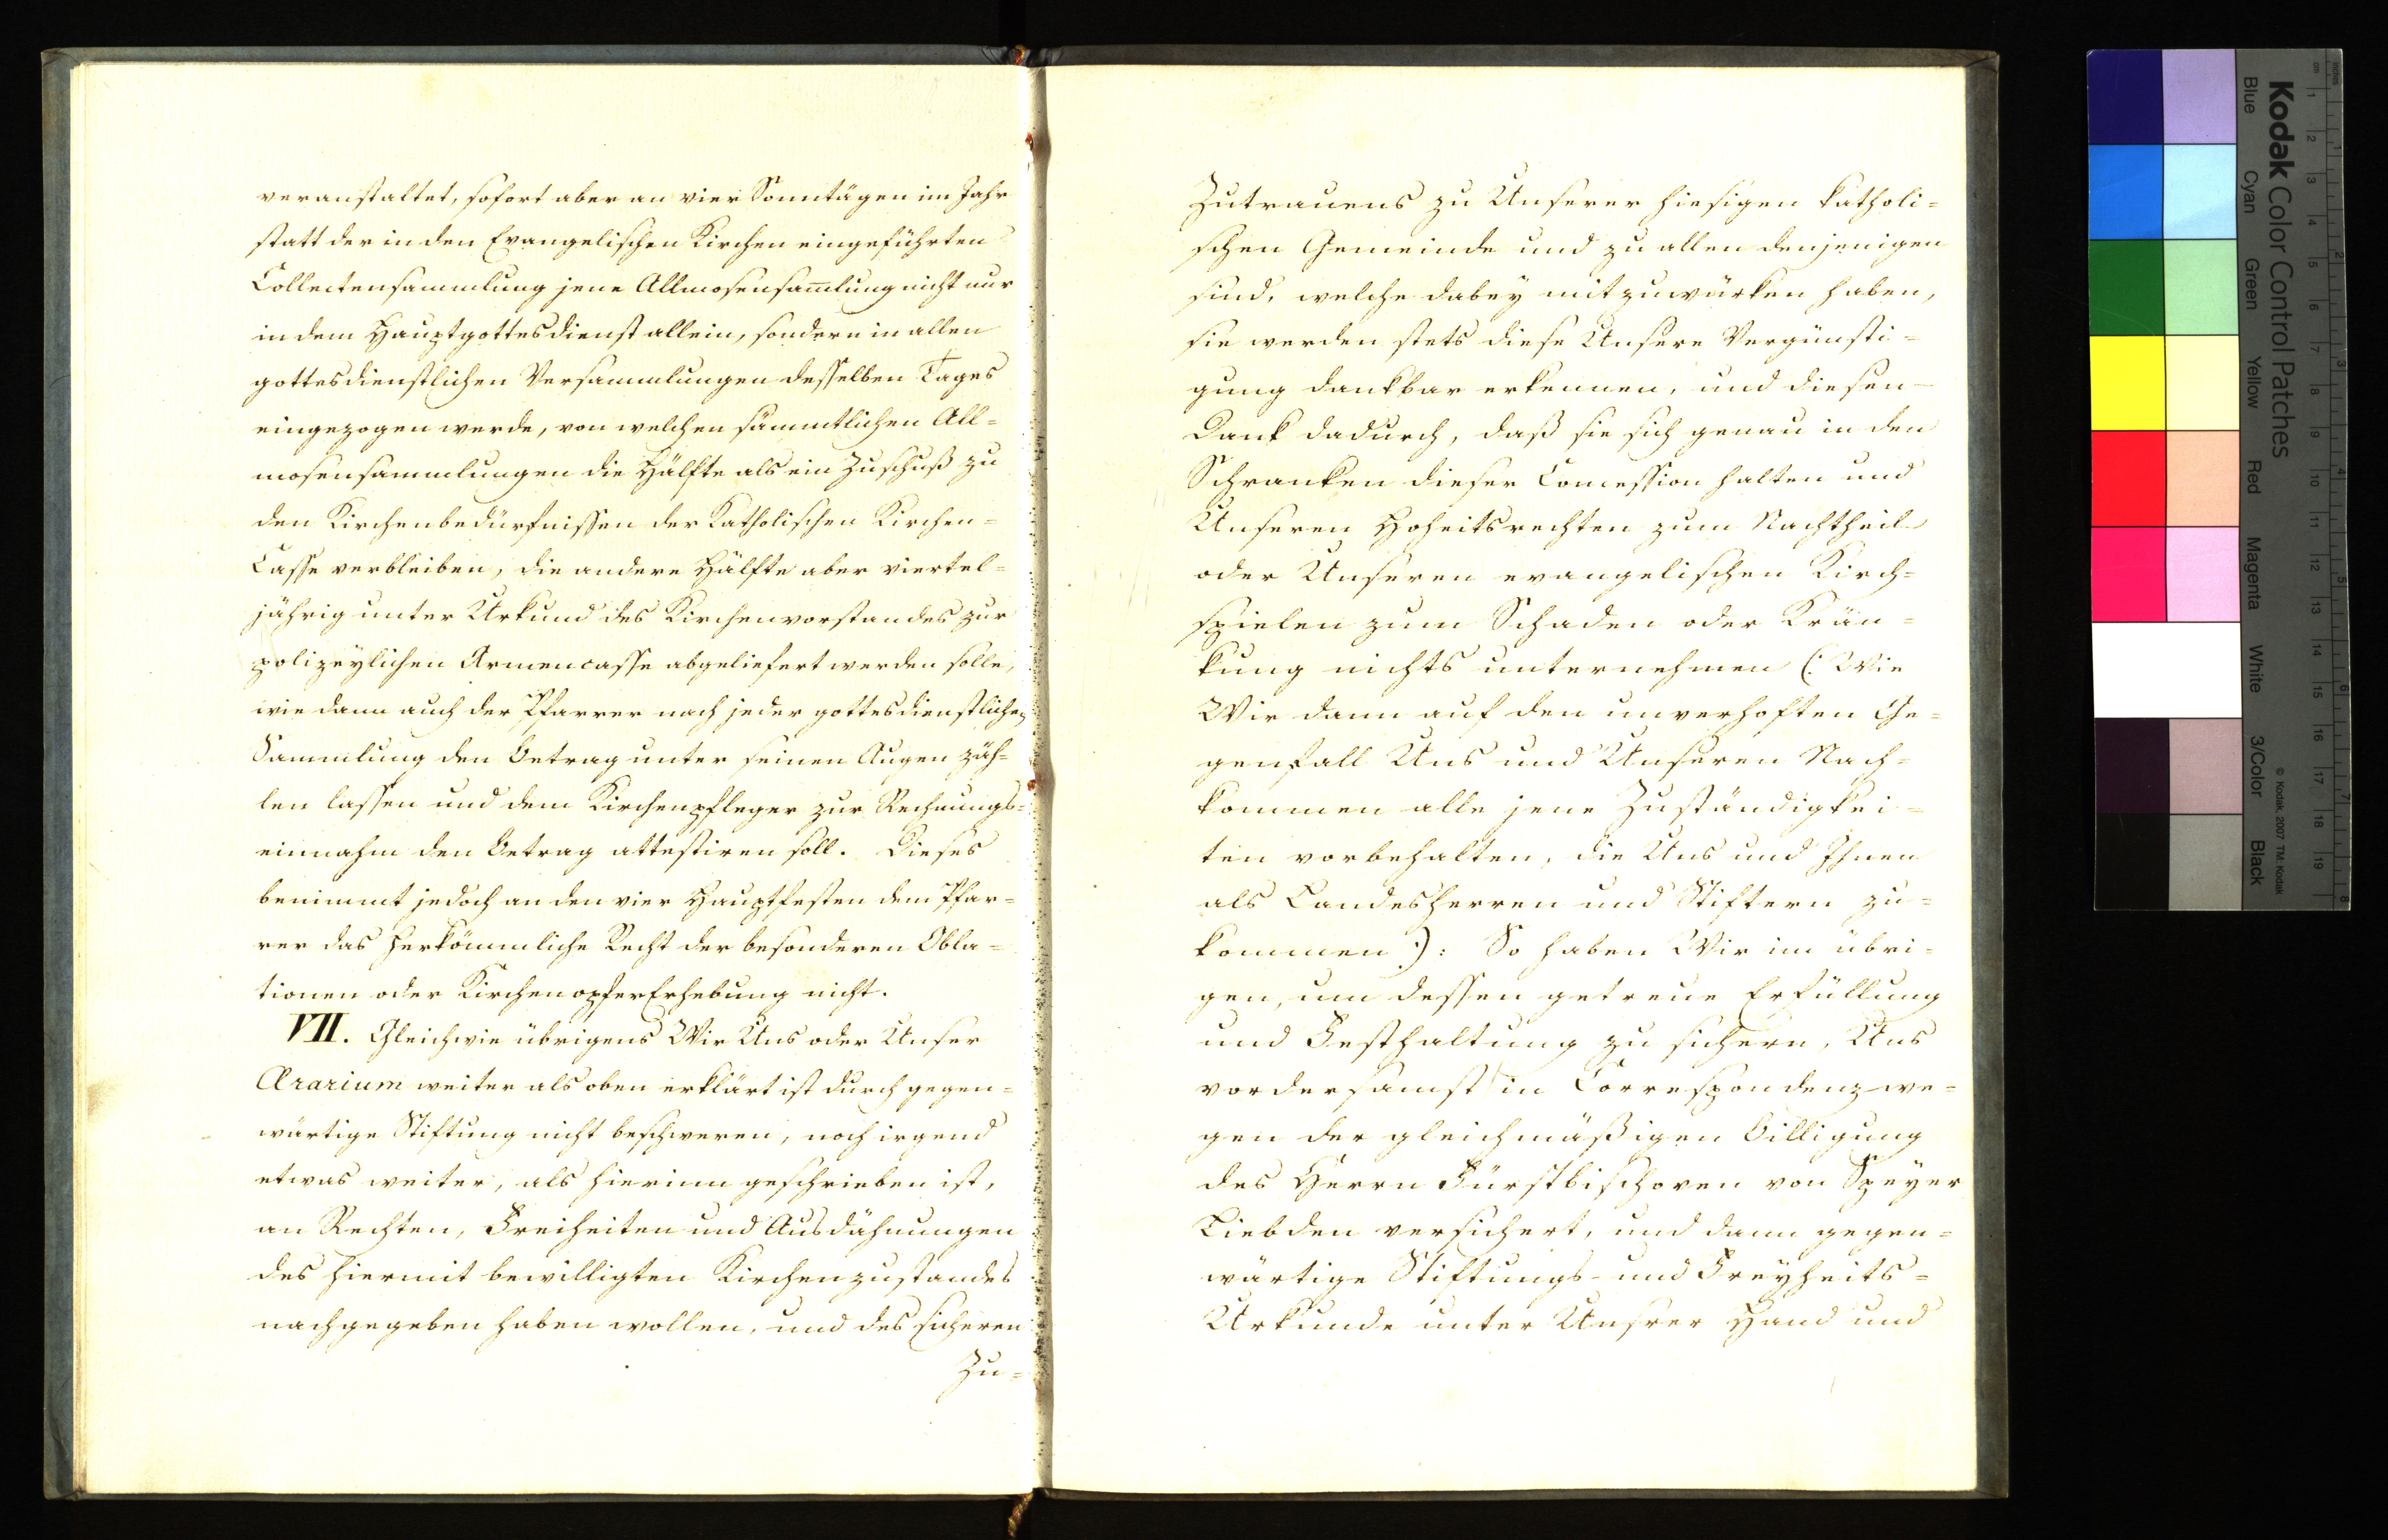 veranstaltet, sofort aber an vier Sonntägen im Jahr
statt der in den Evangelischen Kirchen eingeführten
Collectensammlung jene Allmosensam̄lung nicht nur
in dem Hauptgottesdienst allein, sondern in allen
gottesdienstlichen Versammlungen desselben Tages
eingezogen werde, von welchen sämmtlichen All=
mosensammlungen die Hälfte als ein Zuschuß zu
den Kirchenbedürfnissen der Katholischen Kirchen=
Casse verbleiben, die andere Hälfte aber viertel=
jährig unter Urkund des Kirchenvorstandes zur
polizeylichen Armencasse abgeliefert werden solle,
wie dann auch der Pfarrer nach jeder gottesdienstlichen
Sammlung den Betrag unter seinen Augen zäh=
len lassen und dem Kirchenpfleger zur Rechnungs=
einnahm den Betrag attestiren soll. Dieses
benimmt jedoch an den vier Hauptfesten dem Pfar=
rer das herkömmliche Recht der besonderen Obla=
tionen oder KirchenopferErhebung nicht.
VII. Gleichwie übrigens Wir Uns oder Unser
Ærarium weiter als oben erklärt ist durch gegen=
wärtige Stiftung nicht beschweren, noch irgend
etwas weiter, als hierinn geschrieben ist,
an Rechten, Freiheiten und Ausdähnungen
des hiermit bewilligten Kirchenzustandes
nachgegeben haben wollen, und des sicheren
Zu=
Zutrauens zu Unserer hiesigen katholi=
schen Gemeinde und zu allen denjenigen
sind, welche dabey mitzuwürken haben,
sie werden stets diese Unsere Vergünsti=
gung dankbar erkennen, und diesen
Dank dadurch, daß sie sich genau in den
Schranken dieser Concession halten und
Unseren Hoheitsrechten zum Nachtheil
oder Unseren evangelischen Kirch=
spielen zum Schaden oder Krän=
kung nichts unternehmen (: Wie
Wir dann auf den unverhoften Ge=
genfall Uns und Unseren Nach=
kommen alle jene Zuständigkei=
ten vorbehalten, die Uns und Ihnen
als Landesherren und Stiftern zu=
kommen :) : So haben Wir im übri=
gen, um dessen getreue Erfüllung
und Festhaltung zu sichern, Uns
vordersamst in Correspondenz we=
gen der gleichmäßigen Billigung
des Herrn Fürstbischoven von Speyer
Liebden versichert, und dann gegen=
wärtige Stiftungs- und Freyheits=
Urkunde unter Unsrer Hand und
Kodak Color Control Patches
Blue Cyan Green Yellow Red Magenta White 3/Color Black
© Kodak, 2007 TM: Kodak
cm 1 2 3 4 5 6 7 8 9 10 11 12 13 14 15 16 17 18 19
inches 1 2 3 4 5 6 7 8